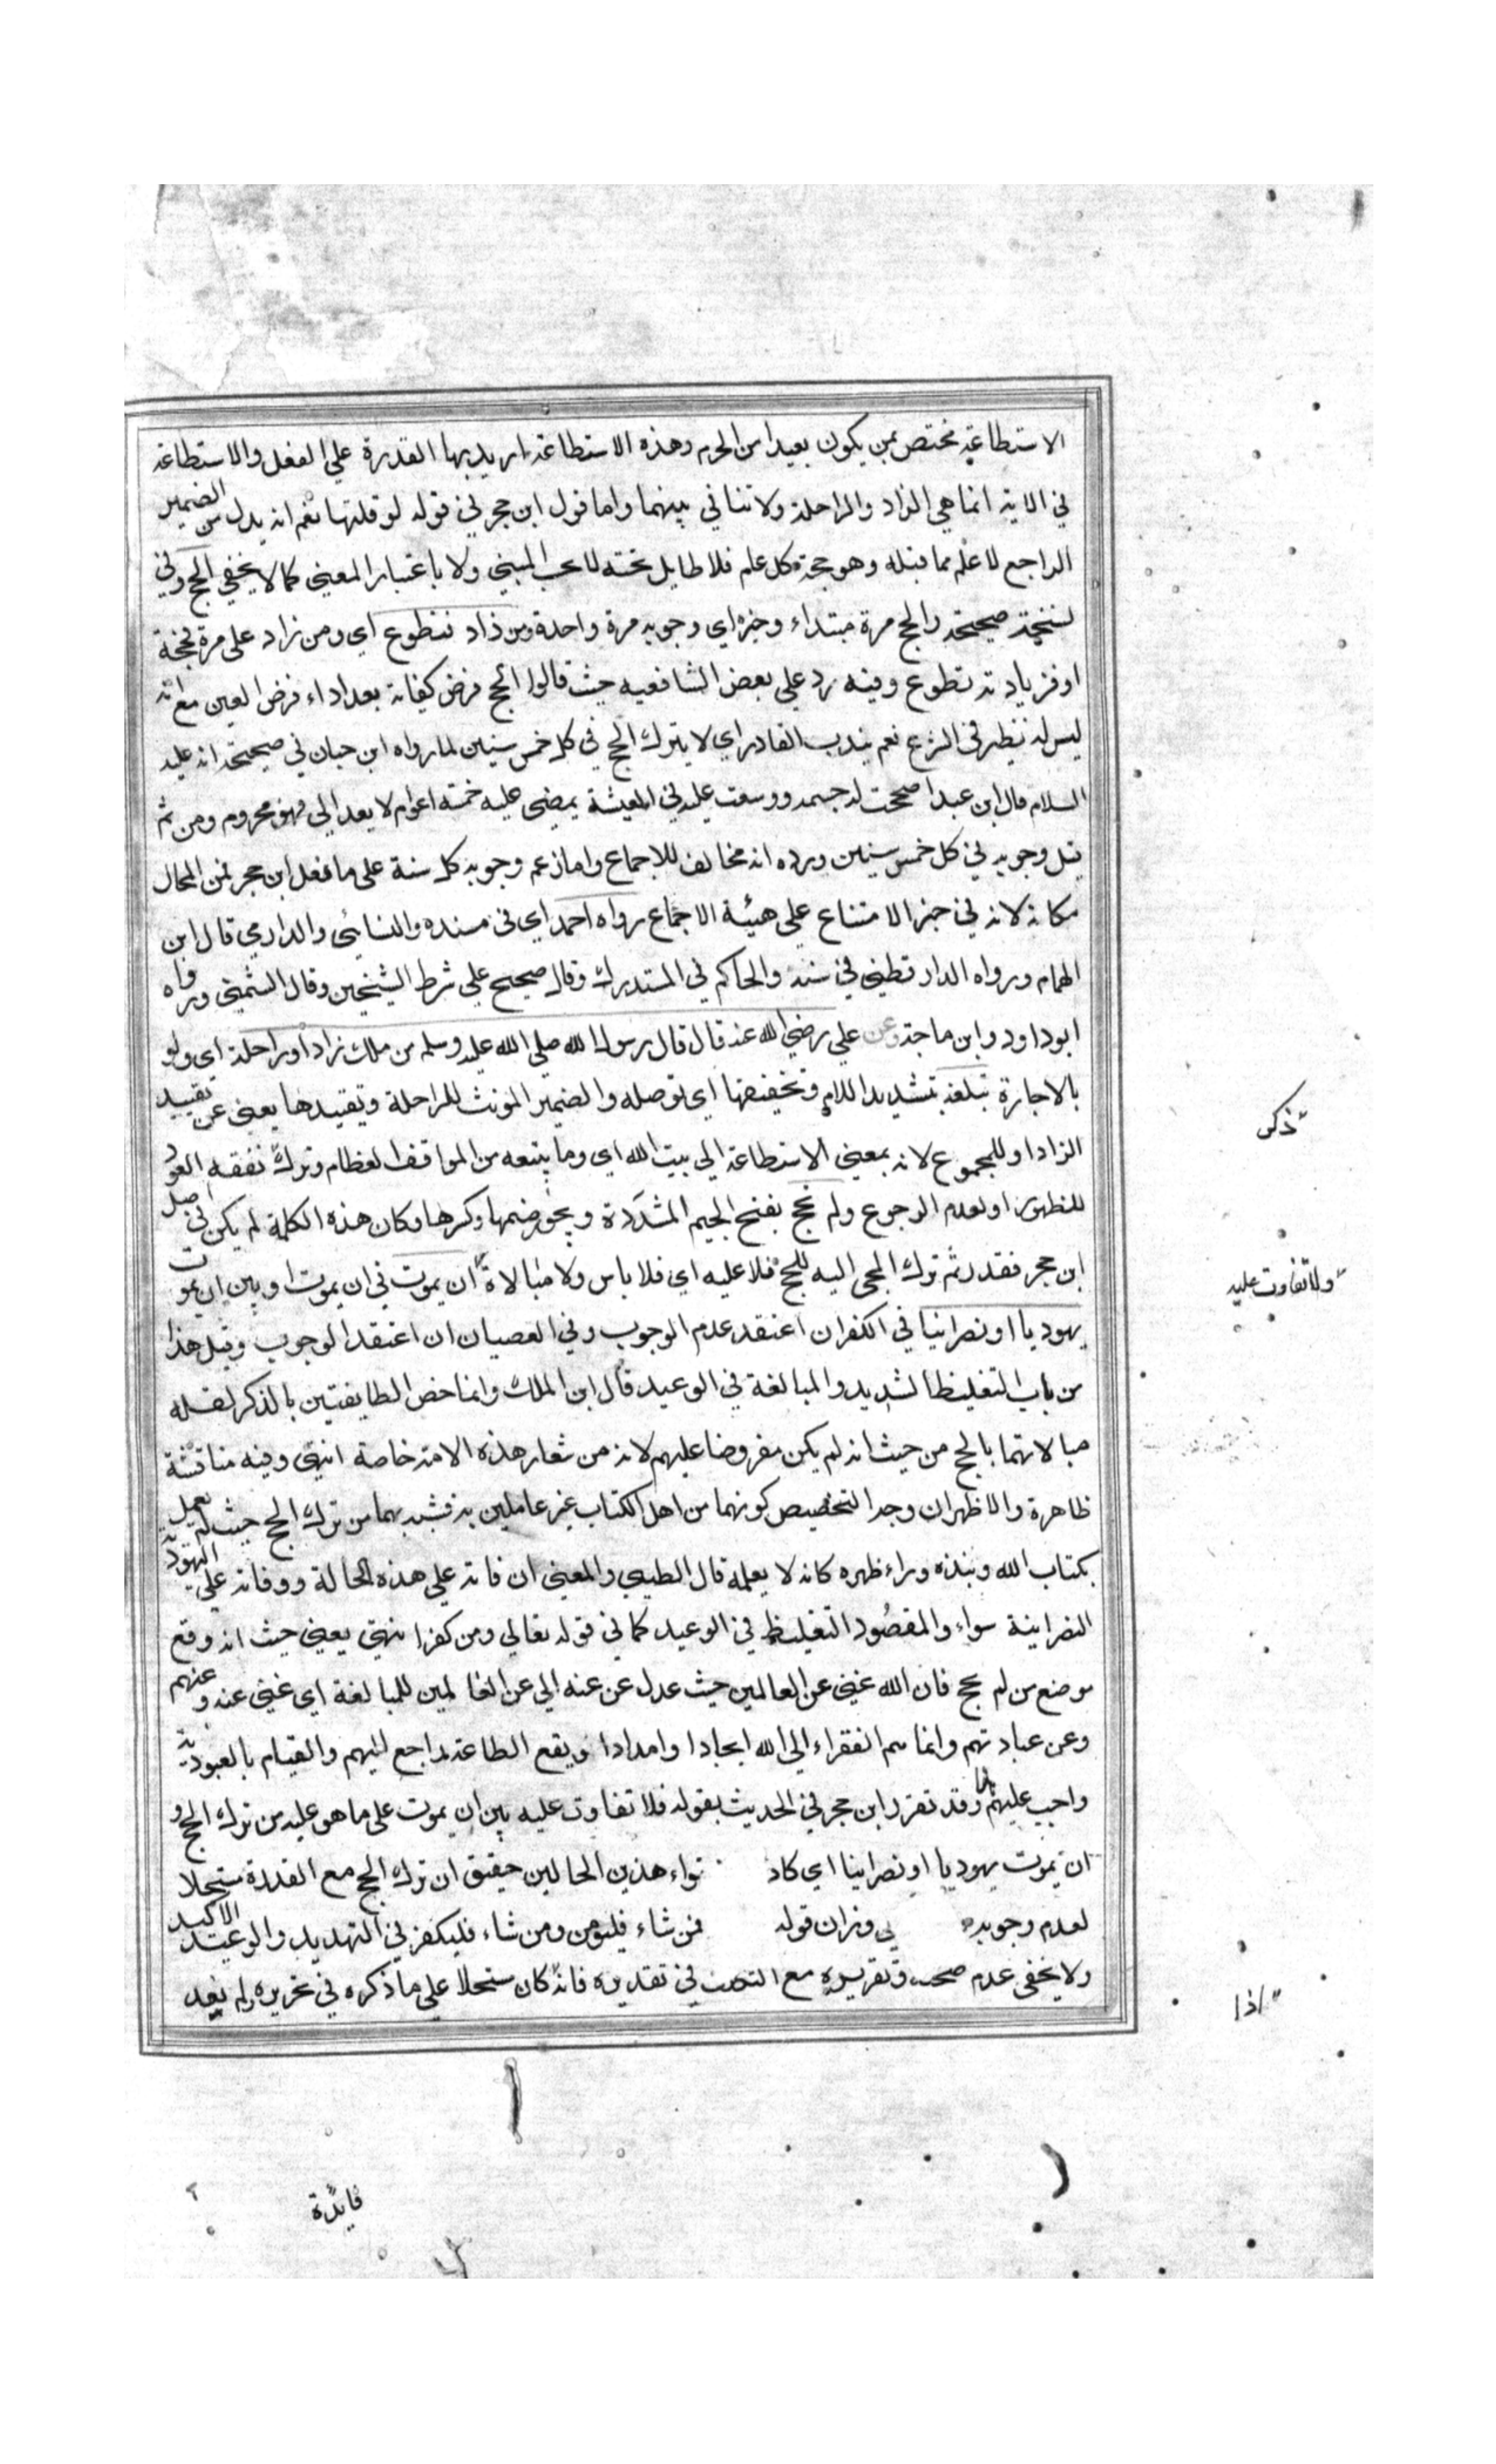 الاستطاعة مختص بمن يكون بعيدا من الحرم وهذه الاستطاعة اريد بها القدرة علي الفعل والاستطاعة
في الاية انما هي الزاد والراحلة ولا تنافي بينهما واما قول ابن حجر في قوله لو قلتها نعم انه بدل من الضمير
الراجع لما علم مما قبله وهو حجة كل عام فلا طايل تحته لا بحسب المبني ولا باعتبار المعني كما لا يخفي الحج وفي
نسخة صحيحة والحج مرة مبتداء وخبره اي وجوبه مرة واحدة ومن زاد فتطوع اي ومن زاد علي مرة فحجة
او فزيادته تطوع وفيه رد علي بعض الشافعيه حيث قالوا الحج فرض كفاية بعد اداء فرض العين مع انه
ليس له نظير في الشرع نعم يندب القادر اي لا يترك الحج في كل خمس سنين لما رواه ابن حبان في صحيحه انه عليه
السلام قال ان عبدا صححت له جسمه ووسعت عليه في المعيشة يمضي عليه خمسة اعوام لا يعد الي فهو محروم ومن ثم
قيل وجوبه في كل خمس سنين ورده انه مخالف للاجماع واما زعم وجوبه كل سنة على ما فعل ابن حجر فمن المحال
مكانه لانه في حيز الامتناع علي هيئة الاجماع رواه احمد اي في مسنده والنسائي والدارمي قال ابن
الهمام ورواه الدارقطني في سننه والحاكم في المستدرك وقال صحيح علي شرط الشيخين وقال الشمني ورواه
ابو داود وابن ماجة وعن علي رضي الله عنه قال قال رسول الله صلي الله عليه وسلم من ملك زادا وراحلة اي ولو
بالاجارة تبلغه بتشديد اللام وتخفيفها اي توصله والضمير المونث للراحلة وتقييدها يعني عن تقييد
الزاد او للمجموع لانه بمعني الاستطاعة الي بيت الله اي وما يتبعه من المواقف العظام وترك نفقه العود
للظهور او لعدم الرجوع ولم يحج بفتح الجيم المشددة ويجوز ضمها وكسرها وكان هذه الكلمة لم يكن في اصل
ابن حجر فقدر ثم ترك المجي اليه للحج فلا عليه اي فلا باس ولا مبالاة ان يموت في ان يموت او بين ان يموت
يهوديا او نصرانيا في الكفران اعتقد عدم الوجوب وفي العصيان ان اعتقد الوجوب وقيل هذا
من باب التغليظ الشديد والمبالغة في الوعيد قال ابن الملك وانما خص الطايفتين بالذكر لقله
مبالاتهما بالحج من حيث انه لم يكن مفروضا عليهم لانه من شعار هذه الامة خاصة انتهي وفيه مناقشة
ظاهرة والاظهر ان وجه التخصيص كونهما من اهل الكتاب غير عاملين به فشبه بهما من ترك الحج حيث لم يعمل
بكتاب الله ونبذه وراء ظهره كانه لا يعلمه قال الطيبي والمعني ان وفاته علي هذه الحالة ووفاته علي اليهودية
النصرانية سواء والمقصود التغليظ في الوعيد كما في قوله تعالي ومن كفر انتهي يعني حيث انه وقع
موضع من لم يحج فان الله غني عن العالمين حيث عدل عن عنه الي عن العالمين للمبالغة اي غني عنه وعنهم
وعن عبادتهم وانما هم الفقراء الي الله ايجادا وامدادا ونفع الطاعة راجع اليهم والقيام بالعبودية
واجب عليهم وقد تقرر ابن حجر في الحديث بقوله فلا تفاوت عليه بين ان يموت على ما هو عليه من ترك الحج و
ان يموت يهوديا او نصرانيا اي كاد نواء هذين الحالين حقيق ان ترك الحج مع القدرة مستحلا
لعدم وجوبه وزان قوله فمن شاء فليومن ومن شاء فليكفر في التهديد والوعيد الاكيد
ولا يخفى عدم صحة تقريره مع التعنت في تقديره فانه كان مستحلا علي ما ذكره في تحريره لم يفد
ذكر
ولا تفاوت عليه
اذا
فايدة